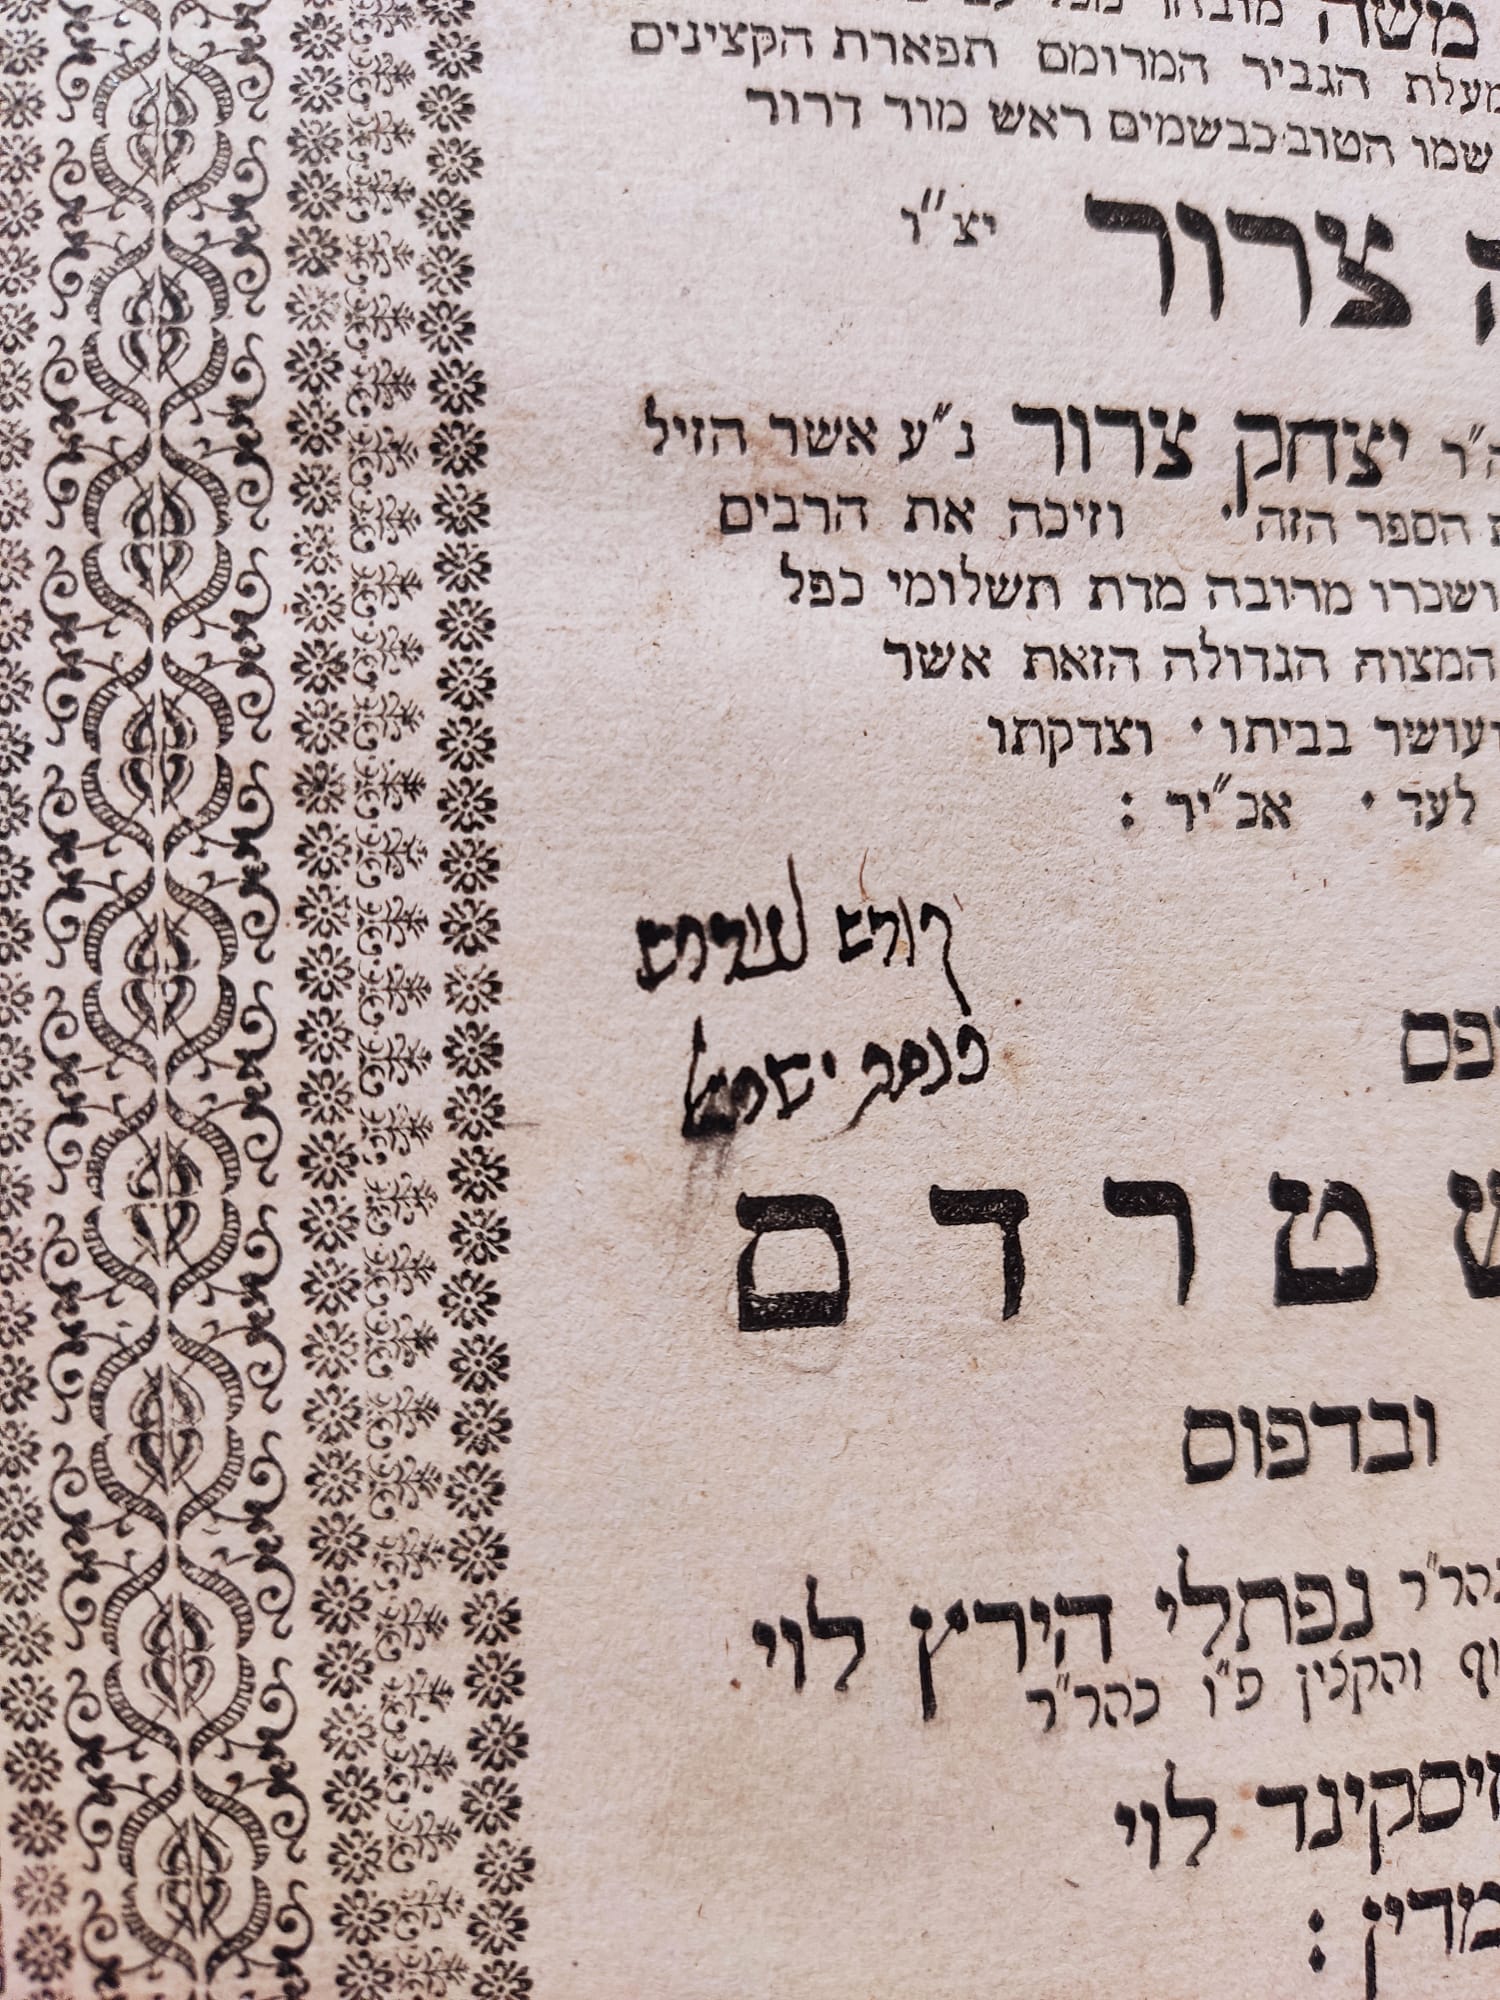 משה
מעלת הגביר המרומם תפארת הקצינים
שמו הטוב כבשמים ראש מור דרור
צרור יצ"ו
יצחק צרור נ"ע אשר הזיל
הספר הזה י וזיכה את הרבים
ושכרו מרובה מדת תשלומי כפל
המצוה הגדולה הזאת אשר
ועושר בביתו י וצדקתו
לעד י אכ"יר :
קודש
פנחס ישראל
טרדם
ובדפוס
נפתלי הירץ לוי
והקצין פ"ו כהר"ר
זיסקינד לוי